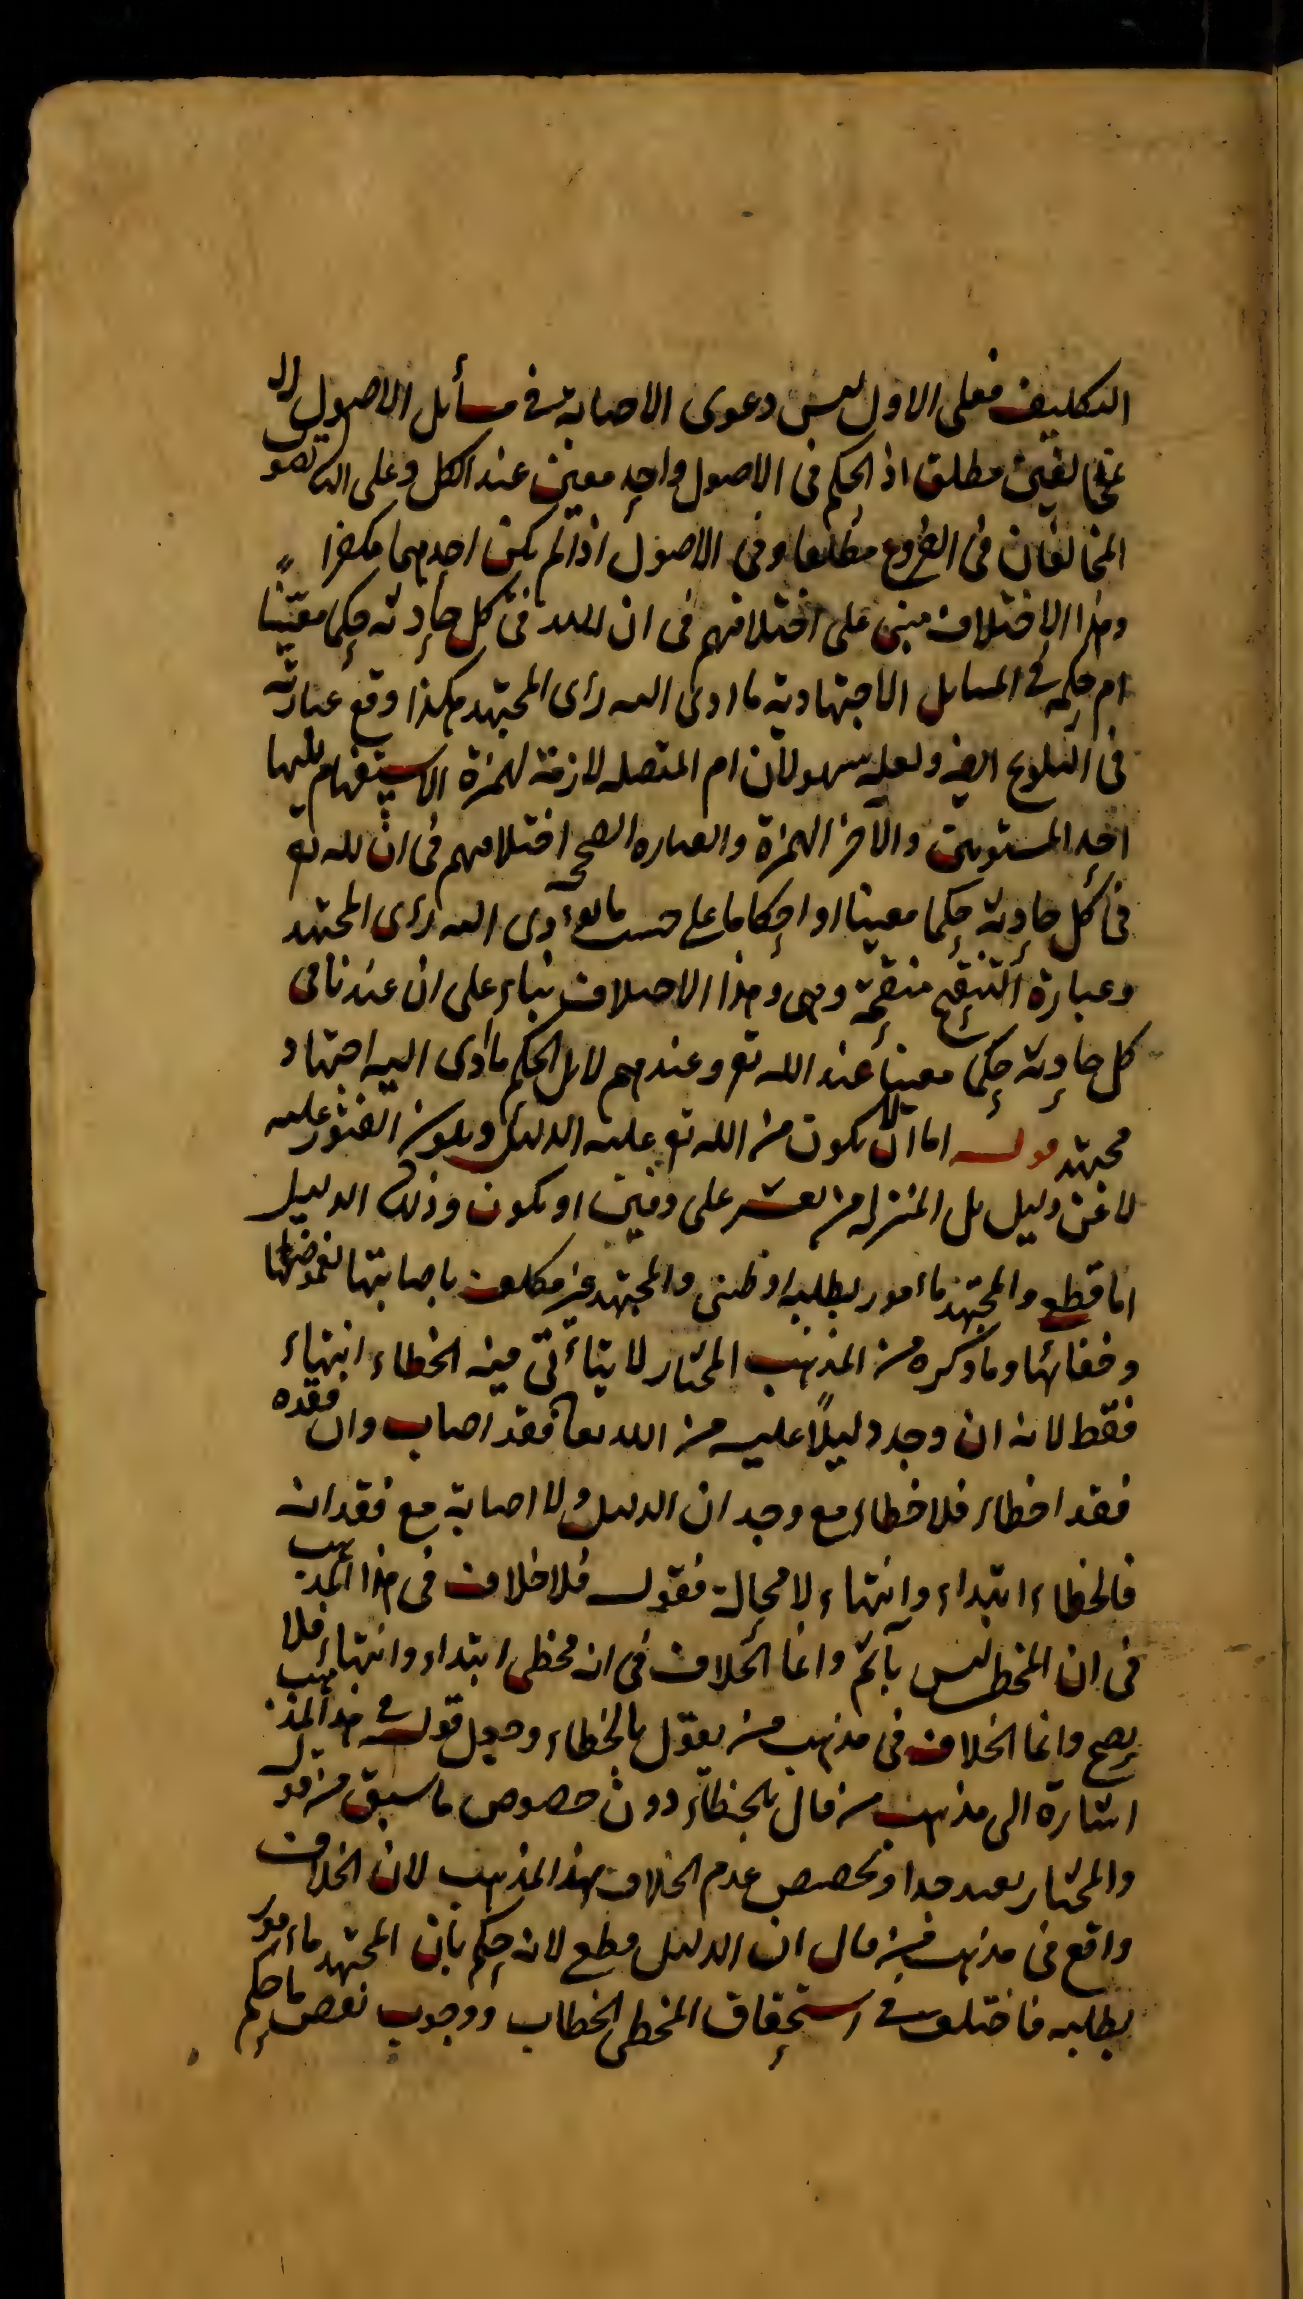 التكليف فعلى الاول ليس دعوى الاصابة في مسأئل الاصول الا
عن يقين مطلق اذ الحكم فى الاصول واحد معين عند الكل وعلى
المخالفان فى الفروع مطلقا وفى الاصول اذا لم يكن احدهما مكفرا
وهذا الاختلاف مبنى على اختلافهم فى ان لله فى كل حادثة حكما معينا
ام حكمه فى المسايل الاجتهادية ما ادى اليه رأى المجتهد هكذا وقع عبارته
فى التلويح ايضا ولعله سهو لأن ام المتصله لازمة لهمزة الاستفهام يليها
احد المستويين والآخر الهمزة والعباره الصحيحة اختلافهم فى ان لله تع
فى كل حادثة حكما معينا او احكاما على حسب ما يؤدى اليه رأى المجتهد
وعبارة التنقيح منقحة وهى وهذا الاختلاف بناء على ان عندنا فى
كل حادثة حكما معينا عند الله تع وعندهم لا بل الحكم ما ادى اليه اجتهاد
مجتهد قوله اما ان لا يكون من الله تع عليه الدليل ويكون العثور عليه
لا عن دليل بل المنزلة من يعثر على دفين او يكون وذلك الدليل
اما قطع والمجتهد ماءمور بطلبه او ظنى والمجتهد غير مكلف باصابتها لغموضها
وخفائها وما ذكره من المذهب المختار لا يتأتى فيه الخطاء انتهاء
فقط لانه ان وجد دليلًا عليه من الله تعا فقد اصاب وان فقده
فقد اخطاء فلا خطاء مع وجدان الدليل ولا اصابة مع فقدانه
فالخطاء ابتداء وانتهاء لا محالة فقوله فلا خلاف فى هذا المذهب
فى ان المخطى ليس بآثم وانما الخلاف فى انه مخطى ابتداء وانتهاء فلا
يصح وانما الخلاف فى مذهب من يقول بالخطاء وجعل قوله فى هذا المذهب
اشارة الى مذهب من قال بالخطاء دون خصوص ما سبق من قوله
والمختار بعيد جدا وتخصيص عدم الخلاف بهذا المذهب لان الخلاف
واقع فى مذهب من قال ان الدليل قطع لانه حكم بأن المجتهد ماءمور
بطلبه فاختلف فى استحقاق المخطى الخطاب ووجوب نقض ما حكم